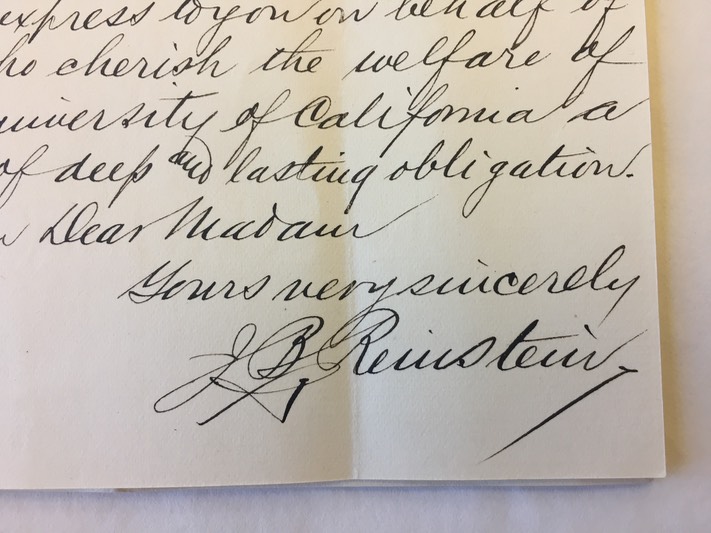 express to you on behalf of
who cherish the welfare of
university of California a
of deep and lasting obligation.
Dear Madam
Yours very sincerely
J B Reinstein